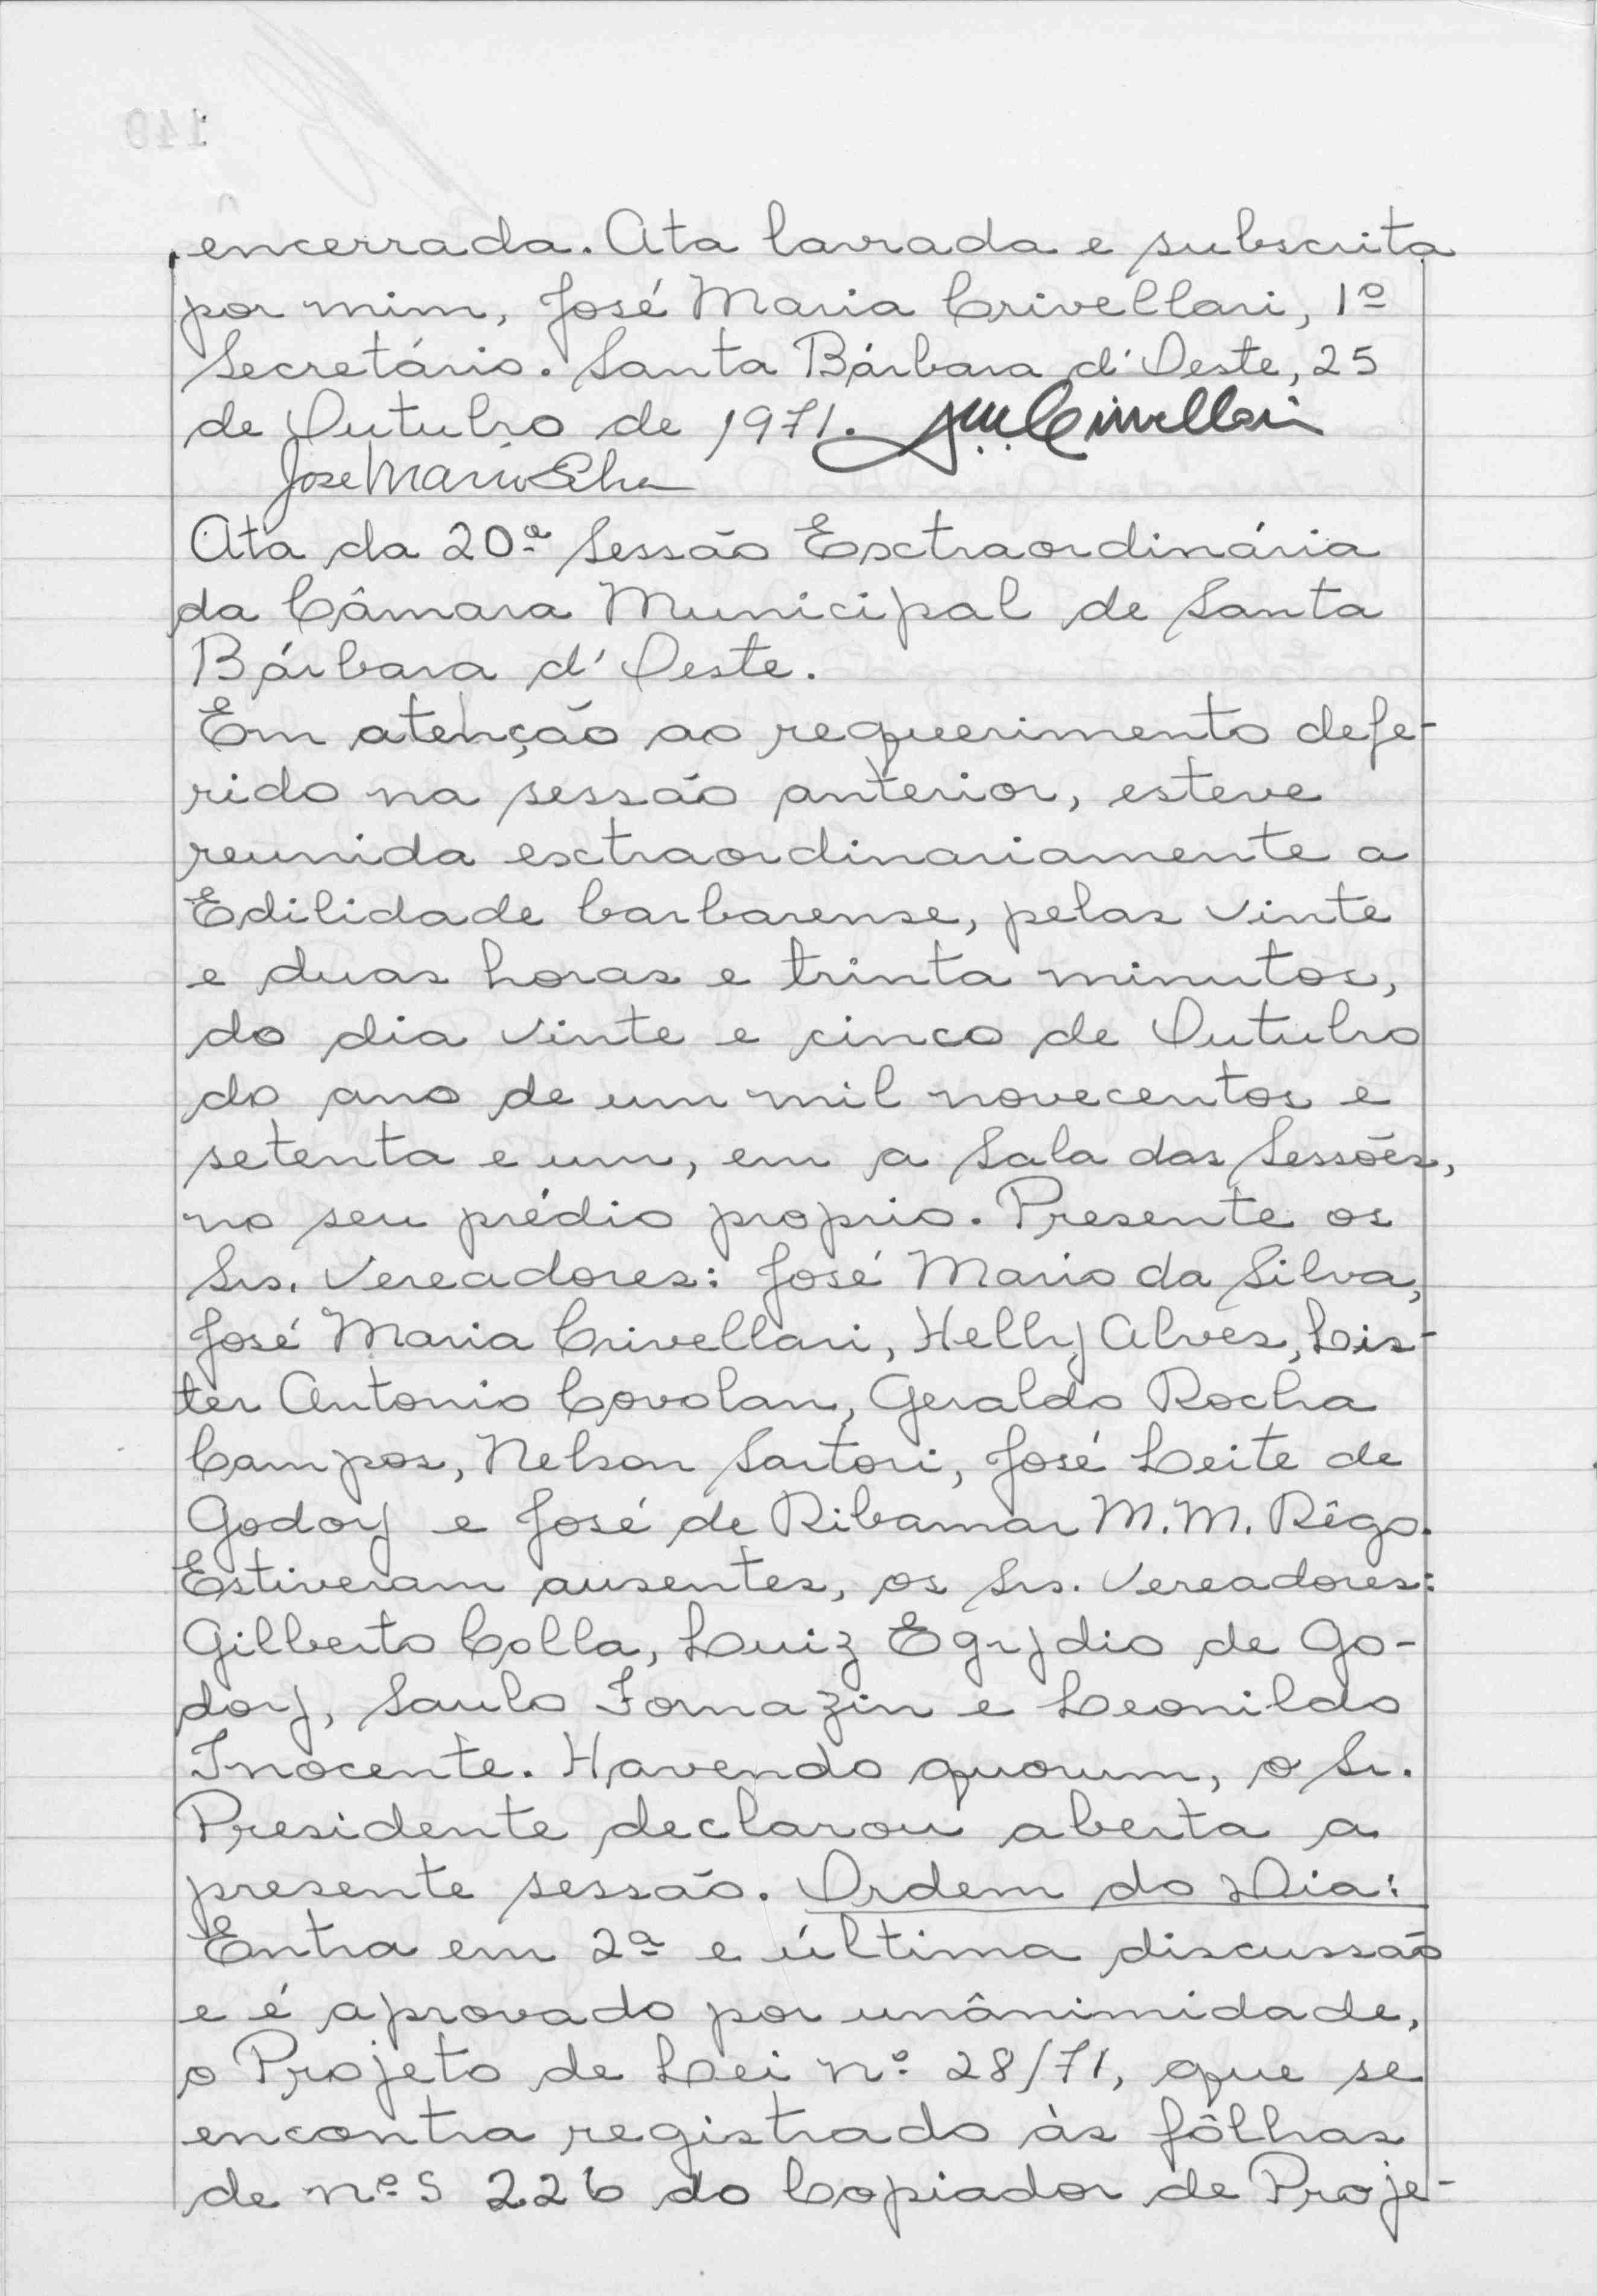 encerrada. Ata lavrada e subscrita
por mim, José Maria Crivellari, 1º
Secretário. Santa Bárbara d'Oeste, 25
de Outubro de 1971. J.M.Crivellari
José Mario Silva
Ata da 20ª Sessão Extraordinária
da Câmara Municipal de Santa
Bárbara d'Oeste.
Em atenção ao requerimento defe-
rido na sessão anterior, esteve
reunida extraordinariamente a
Edilidade barbarense, pelas vinte
e duas horas e trinta minutos,
do dia vinte e cinco de Outubro
do ano de um mil novecentos e
setenta e um, em a Sala das Sessões,
no seu prédio proprio. Presente os
Srs. Vereadores: José Mario da Silva,
José Maria Crivellari, Helly Alves, Lis-
ter Antonio Covolan, Geraldo Rocha
Campos, Nelson Sartori, José Leite de
Godoy e José de Ribamar M.M. Rêgo.
Estiveram ausentes, os Srs. Vereadores:
Gilberto Colla, Luiz Egydio de Go-
doy, Saulo Fornazin e Leonildo
Inocente. Havendo quorum, o Sr.
Presidente declarou aberta a
presente sessão. Ordem do Dia:
Entra em 2ª e última discussão
e é aprovado por unânimidade,
o Projeto de Lei nº 28/71, que se
encontra registrado às fôlhas
de nºs 226 do Copiador de Proje-